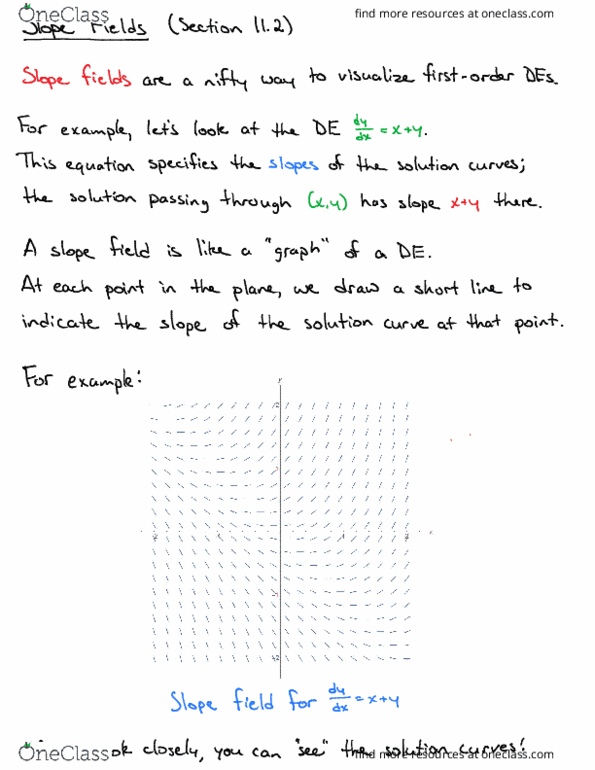 OneClass
find more resources at oneclass.com
Slope Fields (Section 11.2)
Slope fields are a nifty way to visualize first-order DEs.
For example, let's look at the DE dy/dx = x+y.
This equation specifies the slopes of the solution curves;
the solution passing through (x,y) has slope x+y there.
A slope field is like a "graph" of a DE.
At each point in the plane, we draw a short line to
indicate the slope of the solution curve at that point.
For example:
Slope field for dy/dx = x+y
ok closely, you can "see" the solution curves!
OneClass
find more resources at oneclass.com